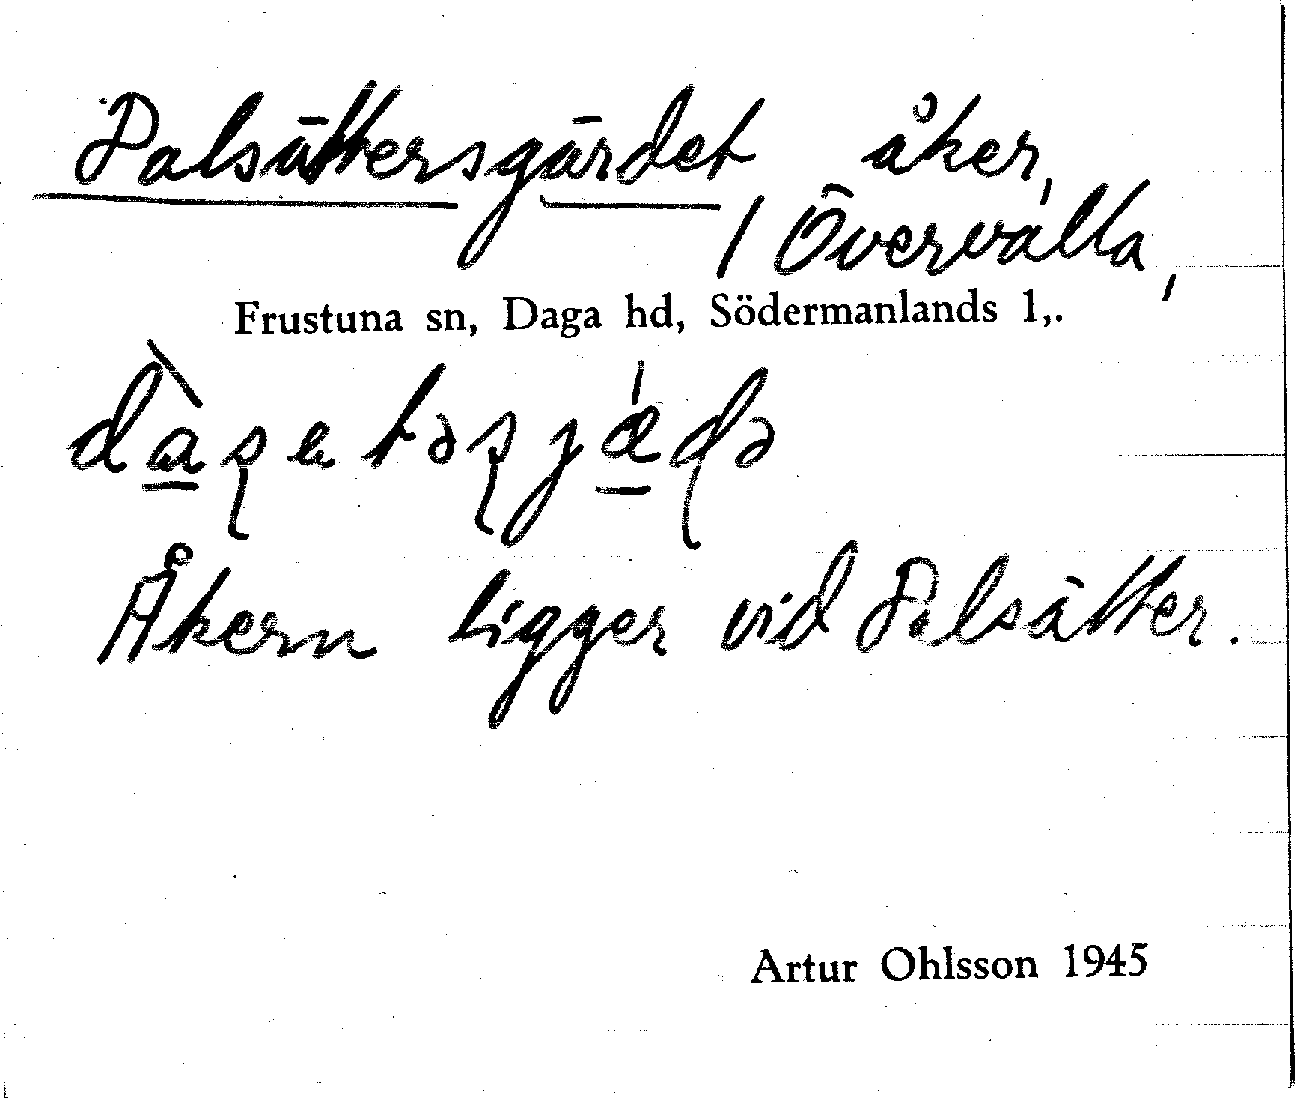 Dalsättersgärdet åker,
/ Övervalla,
Frustuna sn, Daga hd, Södermanlands l,.
Åkern ligger vid Dalsätter.
Artur Ohlsson 1945